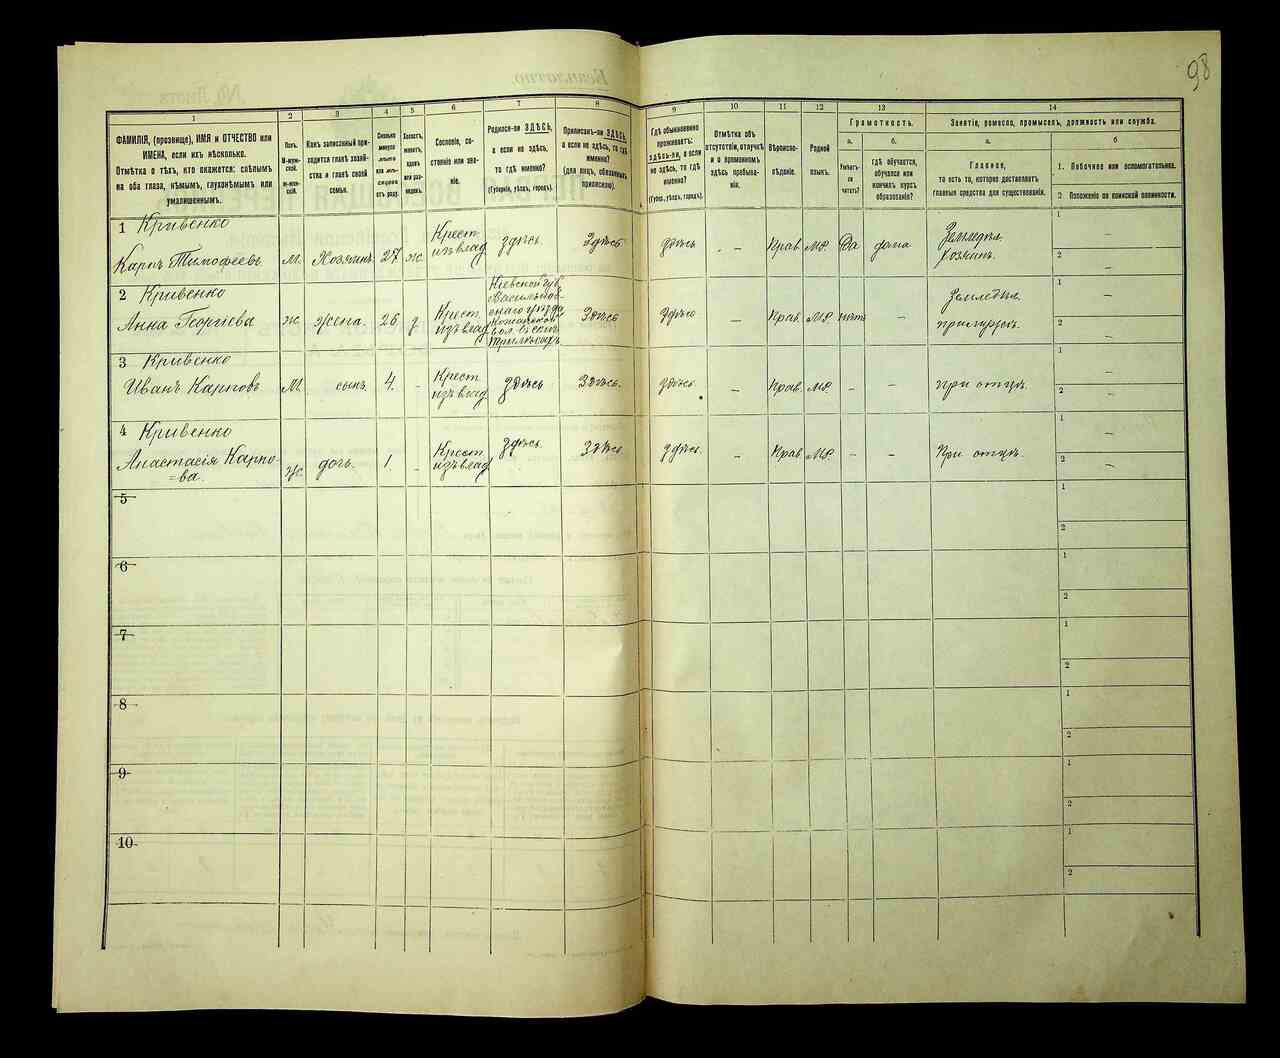 98
1 2 3 4 5 6 7 8 9 10 11 12 13 14
ФАМИЛІЯ, (прозвище), ИМЯ и ОТЧЕСТВО или
ИМЕНА, если ихъ нѣсколько.
Отмѣтка о тѣхъ, кто окажется: слѣпымъ
на оба глаза, нѣмымъ, глухонѣмымъ или
умалишеннымъ.
Полъ.
М-муж-
ской.
Ж-жен-
ской.
Какъ записанный при-
ходится главѣ хозяй-
ства и главѣ своей
семьи.
Сколько
минуло
лѣтъ
или мѣ-
сяцевъ
отъ роду.
Холостъ,
женатъ,
вдовъ
или раз-
веденъ.
Сословіе, со-
стояніе или зва-
ніе.
Родился-ли ЗДѢСЬ,
а если не здѣсь,
то гдѣ именно?
(Губернія, уѣздъ, городъ).
Приписанъ-ли ЗДѢСЬ,
а если не здѣсь, то гдѣ
именно?
(для лицъ, обязанныхъ
припискою).
Гдѣ обыкновенно
проживаетъ:
ЗДѢСЬ-ЛИ, а если
не здѣсь, то гдѣ
именно?
(Губер., уѣздъ, городъ).
Отмѣтка объ
отсутствіи, отлучкѣ
и о временномъ
здѣсь пребыва-
ніи.
Вѣроиспо-
вѣданіе.
Родной
языкъ.
Грамотность.
а.
Умѣетъ-
ли
читать?
б.
гдѣ обучается,
обучался или
кончилъ курсъ
образованія?
Занятіе, ремесло, промыселъ, должность или служба.
а.
Главное,
то есть то, которое доставляетъ
главныя средства для существованія.
б
1. Побочное или вспомогательное.
2 Положеніе по воинской повинности.
1 Кривенко
Карпъ Тимофеевъ
М. Хозяинъ 27 ж.
Крест.
изъ влад.
здѣсь. Здѣсь здѣсь - - Прав. МР. Да дома
Земледѣл.
Хозяинъ.
1 –
2 –
2 Кривенко
Анна Георгіева
ж. жена. 26
Крест.
изъ влад.
Кіевской губ.
Васильков-
скаго уѣзда
Трилѣсахъ
Здѣсь здѣсь – Прав. МР. нѣтъ –
Земледѣл.
при мужѣ.
1 –
2 –
3 Кривенко
Иванъ Карповъ.
М. сынъ. 4. -
Крест.
изъ влад.
здѣсь Здѣсь. здѣсь. – Прав. МР. – – при отцѣ.
1 –
2 –
4 Кривенко
Анастасія Карпо-
=ва.
ж. дочь. 1. -
Крест.
изъ влад.
здѣсь. Здѣсь. здѣсь. – Прав. МР. – – При отцѣ.
1 –
2 –
5 1
2
6 1
2
7 1
2
8 1
2
9 1
2
10 1
2